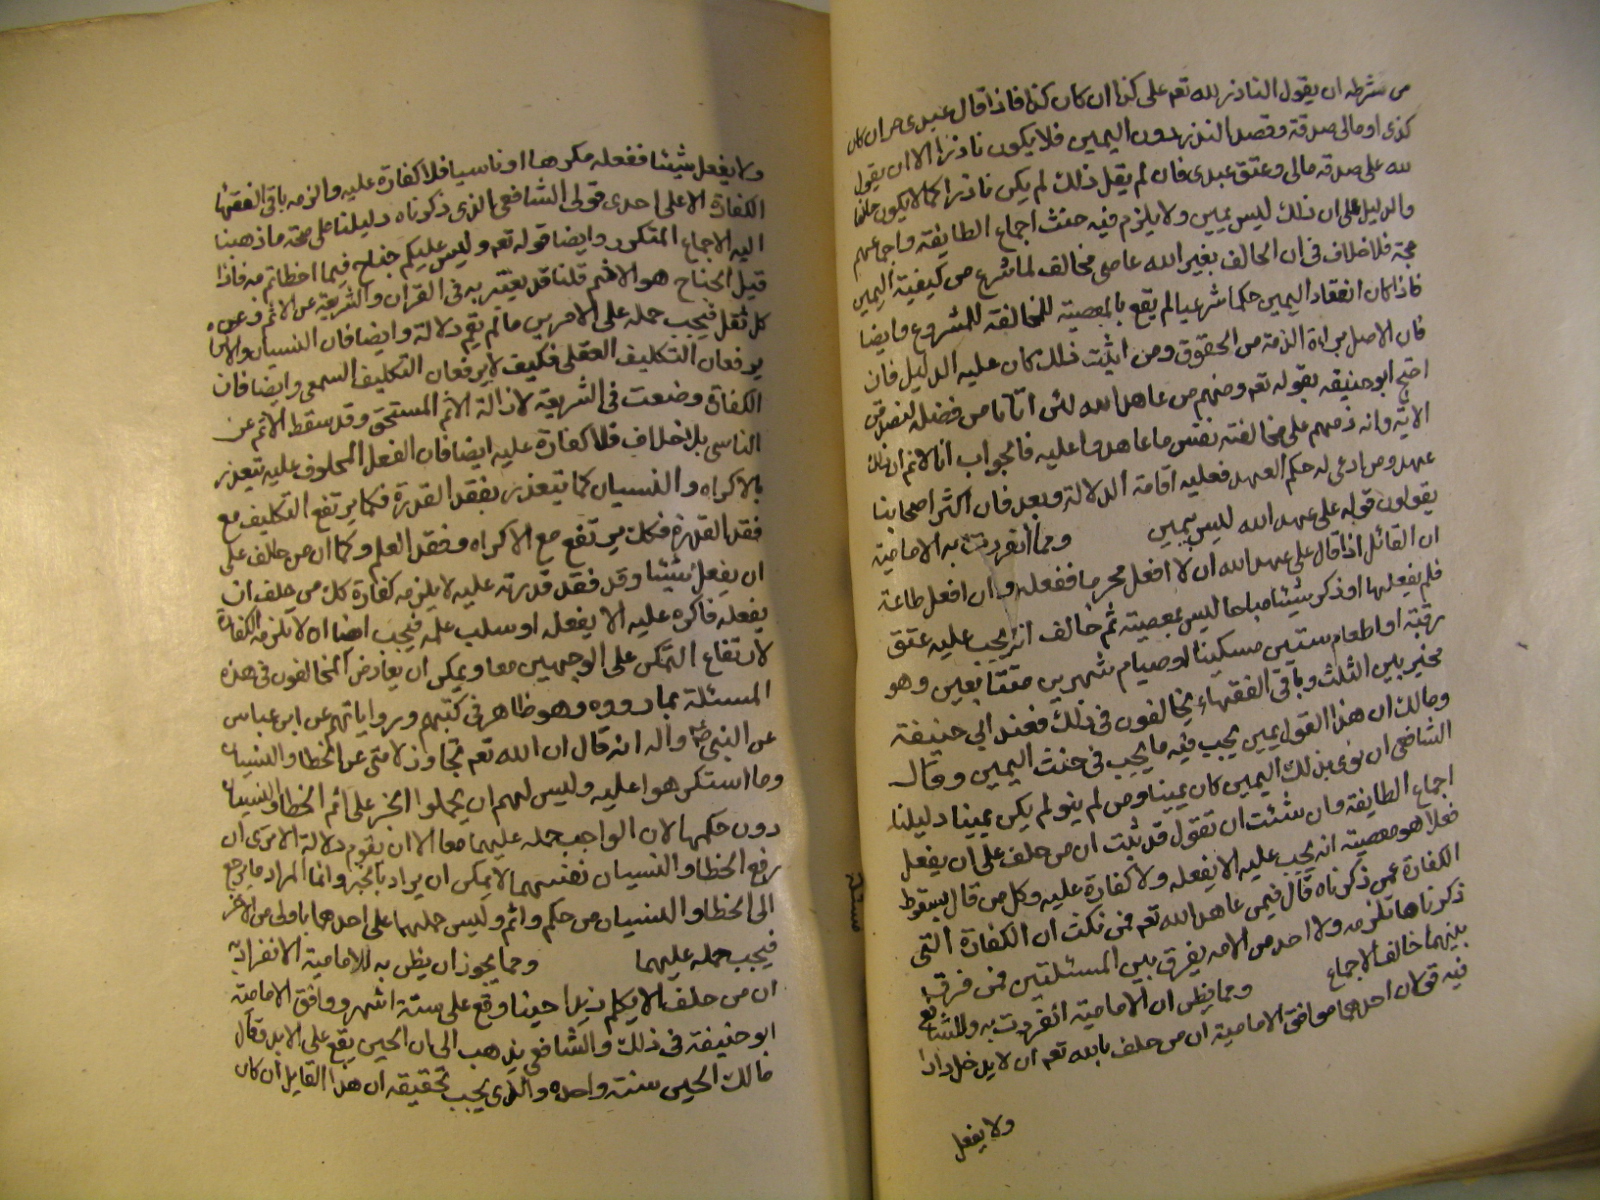 من شرطه ان يقول الناذر لله تعم على كذا ان كان كذا فاذا قال عبدى حر ان كان
كذى او مالى صدقة وقصد النذر دون اليمين فلا يكون ناذرا الا ان يقول
لله على صدقه مالى وعتق عبدى فان لم يقل ذلك لم يكن ناذرا كما لا يكون حالفا
والدليل على ان ذلك ليس بيمين ولا يلزم فيه حنث اجماع الطايفة واجماعهم
حجة فلا خلاف فى ان الحالف بغير الله عاصى مخالف لما شرع من كيفية اليمين
فاذا كان انعقاد اليمين حكما شرعيا لم يقع بالمعصية للمخالفة للمشروع وايضا
فان الاصل براءة الذمة من الحقوق ومن اثبت ذلك كان عليه الدليل فان
احتج ابو حنيفه بقوله تعم ومنهم من عاهد الله لئن اتانا من فضله لنصدقن
الاية وانه ذمهم على مخالفته نفس ما عاهدوا عليه فالجواب انا لانم ان ذلك
عهد ومن ادعى له حكم العهد فعليه اقامة الدلالة وبعد فان اكثر اصحابنا
يقولون قوله على عهد الله ليس بيمين ومما انفردت به الامامية
ان القائل اذا قال على عهد الله ان لا افعل محرما ففعله وان افعل طاعة
فلم يفعلها او ذكر شيئا مباحا ليس بمعصية ثم خالف انه يجب عليه عتق
رقبة او اطعام ستين مسكينا او صيام شهرين متتابعين وهو
مخير بين الثلث وباقى الفقهاء يخالفون فى ذلك فعند ابى حنيفة
ومالك ان هذا القول يمين يجب فيه ما يجب فى حنث اليمين وقال
الشافعى ان نوى بذلك اليمين كان يمينا ومن لم ينو لم يكن يمينا دليلنا
اجماع الطايفة وان شئت ان تقول قد ثبت ان من حلف على ان يفعل
فعلا هو معصية انه يجب عليه الا يفعله ولا كفارة عليه وكل من قال بسقوط
الكفارة عمن ذكرناه قال فيمن عاهد الله تعم فمن نكث ان الكفارة التى
ذكرناها تلزمه ولا احد من الامه يفرق بين المسئلتين فمن فرق
بينهما خالف الاجماع ومما يظن ان الامامية انفردت به وللشافعى
فيه قولان احدهما موافق الامامية ان من حلف بالله تعم ان لا يدخل دارا
ولا يفعل
مسئلة
ولا يفعل شيئا ففعله مكرها او ناسيا فلا كفارة عليه والزمه باقى الفقهاء
الكفارة الا على احدى قولى الشافعى الذى ذكرناه دليلنا على صحة ما ذهبنا
اليه الاجماع المتكرر وايضا قوله تعم وليس عليكم جناح فيما اخطاتم به فاذا
قيل الجناح هو الاثم قلنا قد يعتبر به فى القران والشريعة عن الاثم وعن
كل ثقل فيجب حمله على الامرين ما لم يقم دلالة وايضا فان النسيان والاكراه
يرفعان التكليف العقلى فكيف لا يرفعان التكليف السمعى وايضا فان
الكفارة وضعت فى الشريعة لازالة الاثم المستحق وقد سقط الاثم عن
الناسى بلا خلاف فلا كفارة عليه ايضا فان الفعل المحلوف عليه يتعذر
بالاكراه والنسيان كما يتعذر بفقد القدرة فكما يرتفع التكليف مع
فقد القدرة فكك يرتفع مع الاكراه وفقد العلم وكما ان من حالف على
ان يفعل شيئا وقد فقد قدرته عليه لا يلزمه كفارة كك من حلف ان
يفعله فاكره عليه الا يفعله او سلب علمه فيجب ايضا ان لا يلزمه الكفارة
لارتفاع التمكن على الوجهين معا ويمكن ان يعارض المخالفون فى هذه
المسئلة بما رووه وهو ظاهر فى كتبهم ورواياتهم عن ابن عباس
عن النبى ص واله انه قال ان الله تعم تجاوز لامتى عن الخطا والنسيان
وما استكرهوا عليه وليس لهم ان يحملوا الخبر على اثم الخطا والنسيان
دون حكمها لان الواجب حمله عليهما معا الا ان يقوم دلالة الا ترى ان
رفع الخطا والنسيان نفسهما لا يمكن ان يراد بالخبر وانما المراد ما يرجع
الى الخطا والنسيان من حكم واثم وليس حملهما على احدهما باولى من الاخر
فيجب حمله عليهما ومما يجوز ان يظن به للامامية الانفراد به
ان من حلف الا يكلم زيدا حينا وقع على ستة اشهر ووافق الامامية
ابو حنيفة فى ذلك والشافعى يذهب الى ان الحين يقع على الابد وقال
مالك الحين سنة واحدة والذى يجب تحقيقه ان هذا القايل ان كان